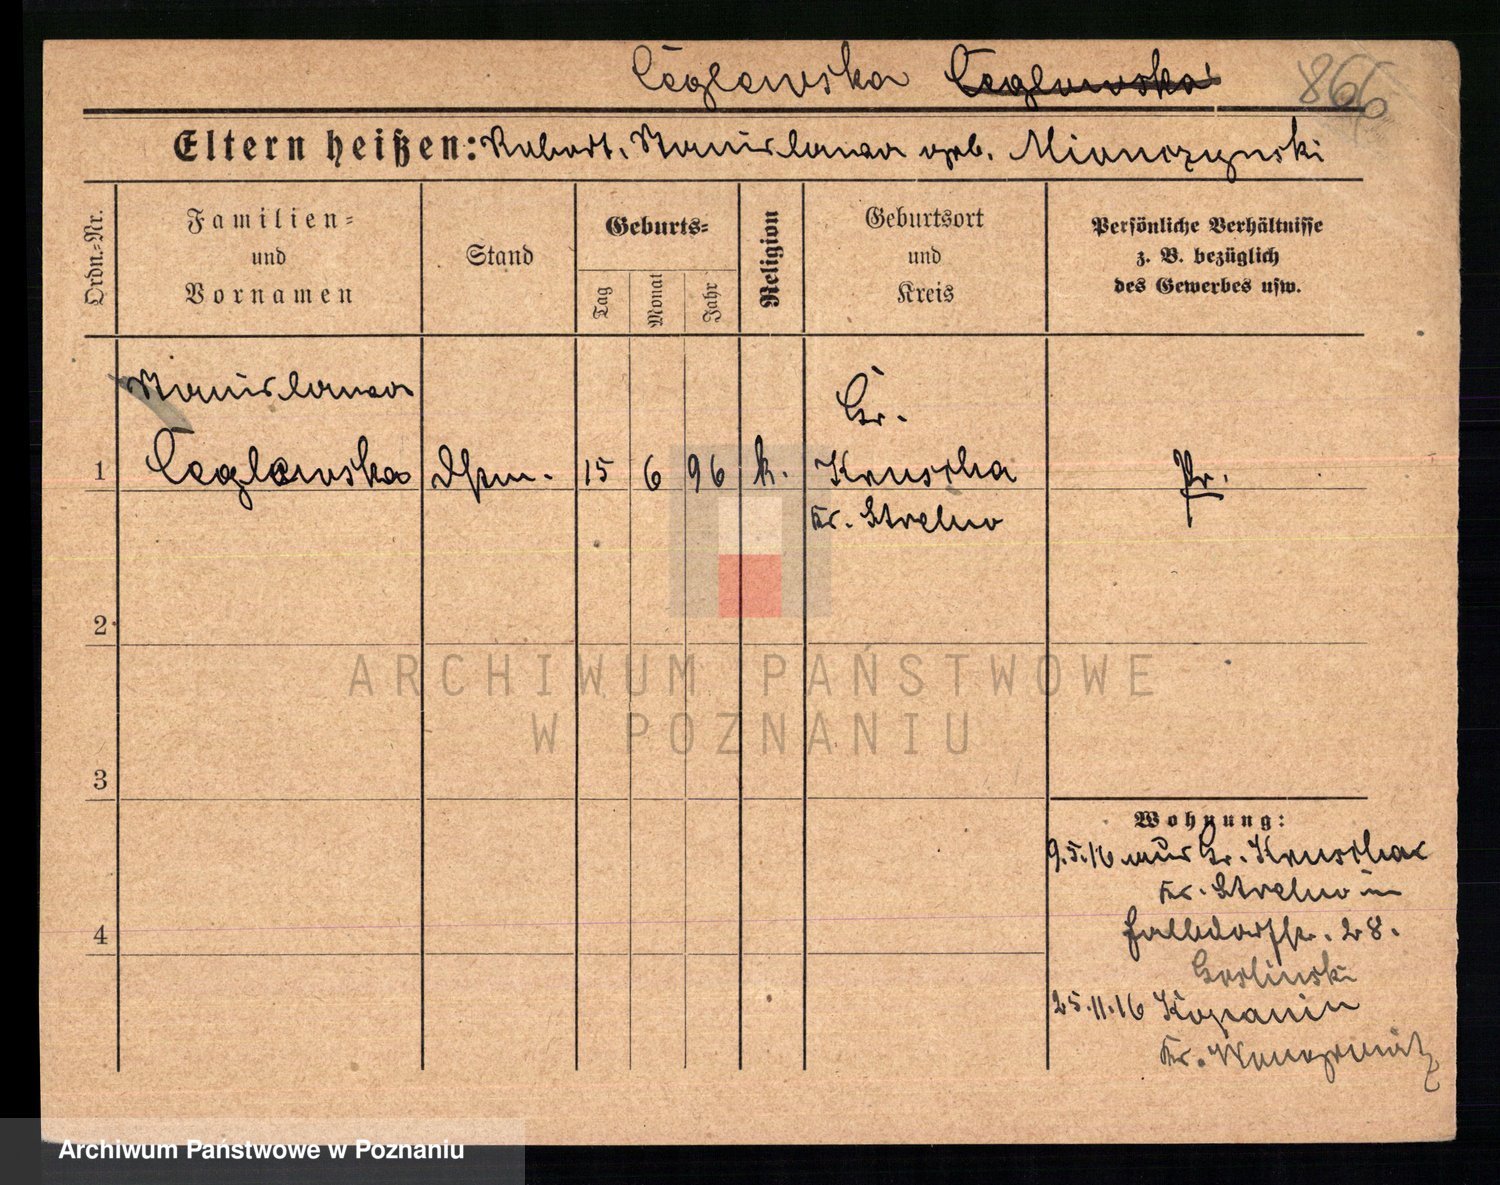 Ceglewska Ceglowska 866
Eltern heißen: Robert, Stanislawa geb. Mionczynski
Ordn.-Nr.
Familien- und Vornamen
Stand
Geburts-
Tag
Monat
Jahr
Religion
Geburtsort und Kreis
Persönliche Verhältnisse
z. B. bezüglich
des Gewerbes usw.
Stanislawa
Gr.
1 Ceglewska 15 6 96 k. Kruscha Pr.
Kr. Strelno
2
ARCHIWUM PAŃSTWOWE
W POZNANIU
3
Wohnung:
9.5.16 aus Gr. Kruscha
Kr. Strelno in
28.
4
25.11.16 Kopanin
Kr. Wongrowitz
Archiwum Państwowe w Poznaniu